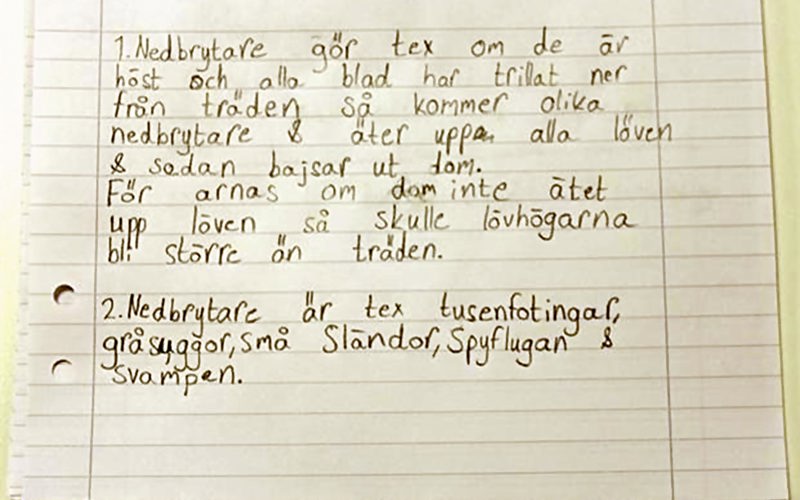 1. Nedbrytare gör tex om de är
höst och alla blad har trillat ner
från träden så kommer olika
nedbrytare & äter uppa alla löven
& sedan bajsar ut dom.
För arnas om dom inte ätet
upp löven så skulle lövhögarna
bli större än träden.
2. Nedbrytare är tex tusenfotingar,
gråsuggor, små Sländor, Spyflugan &
svampen.